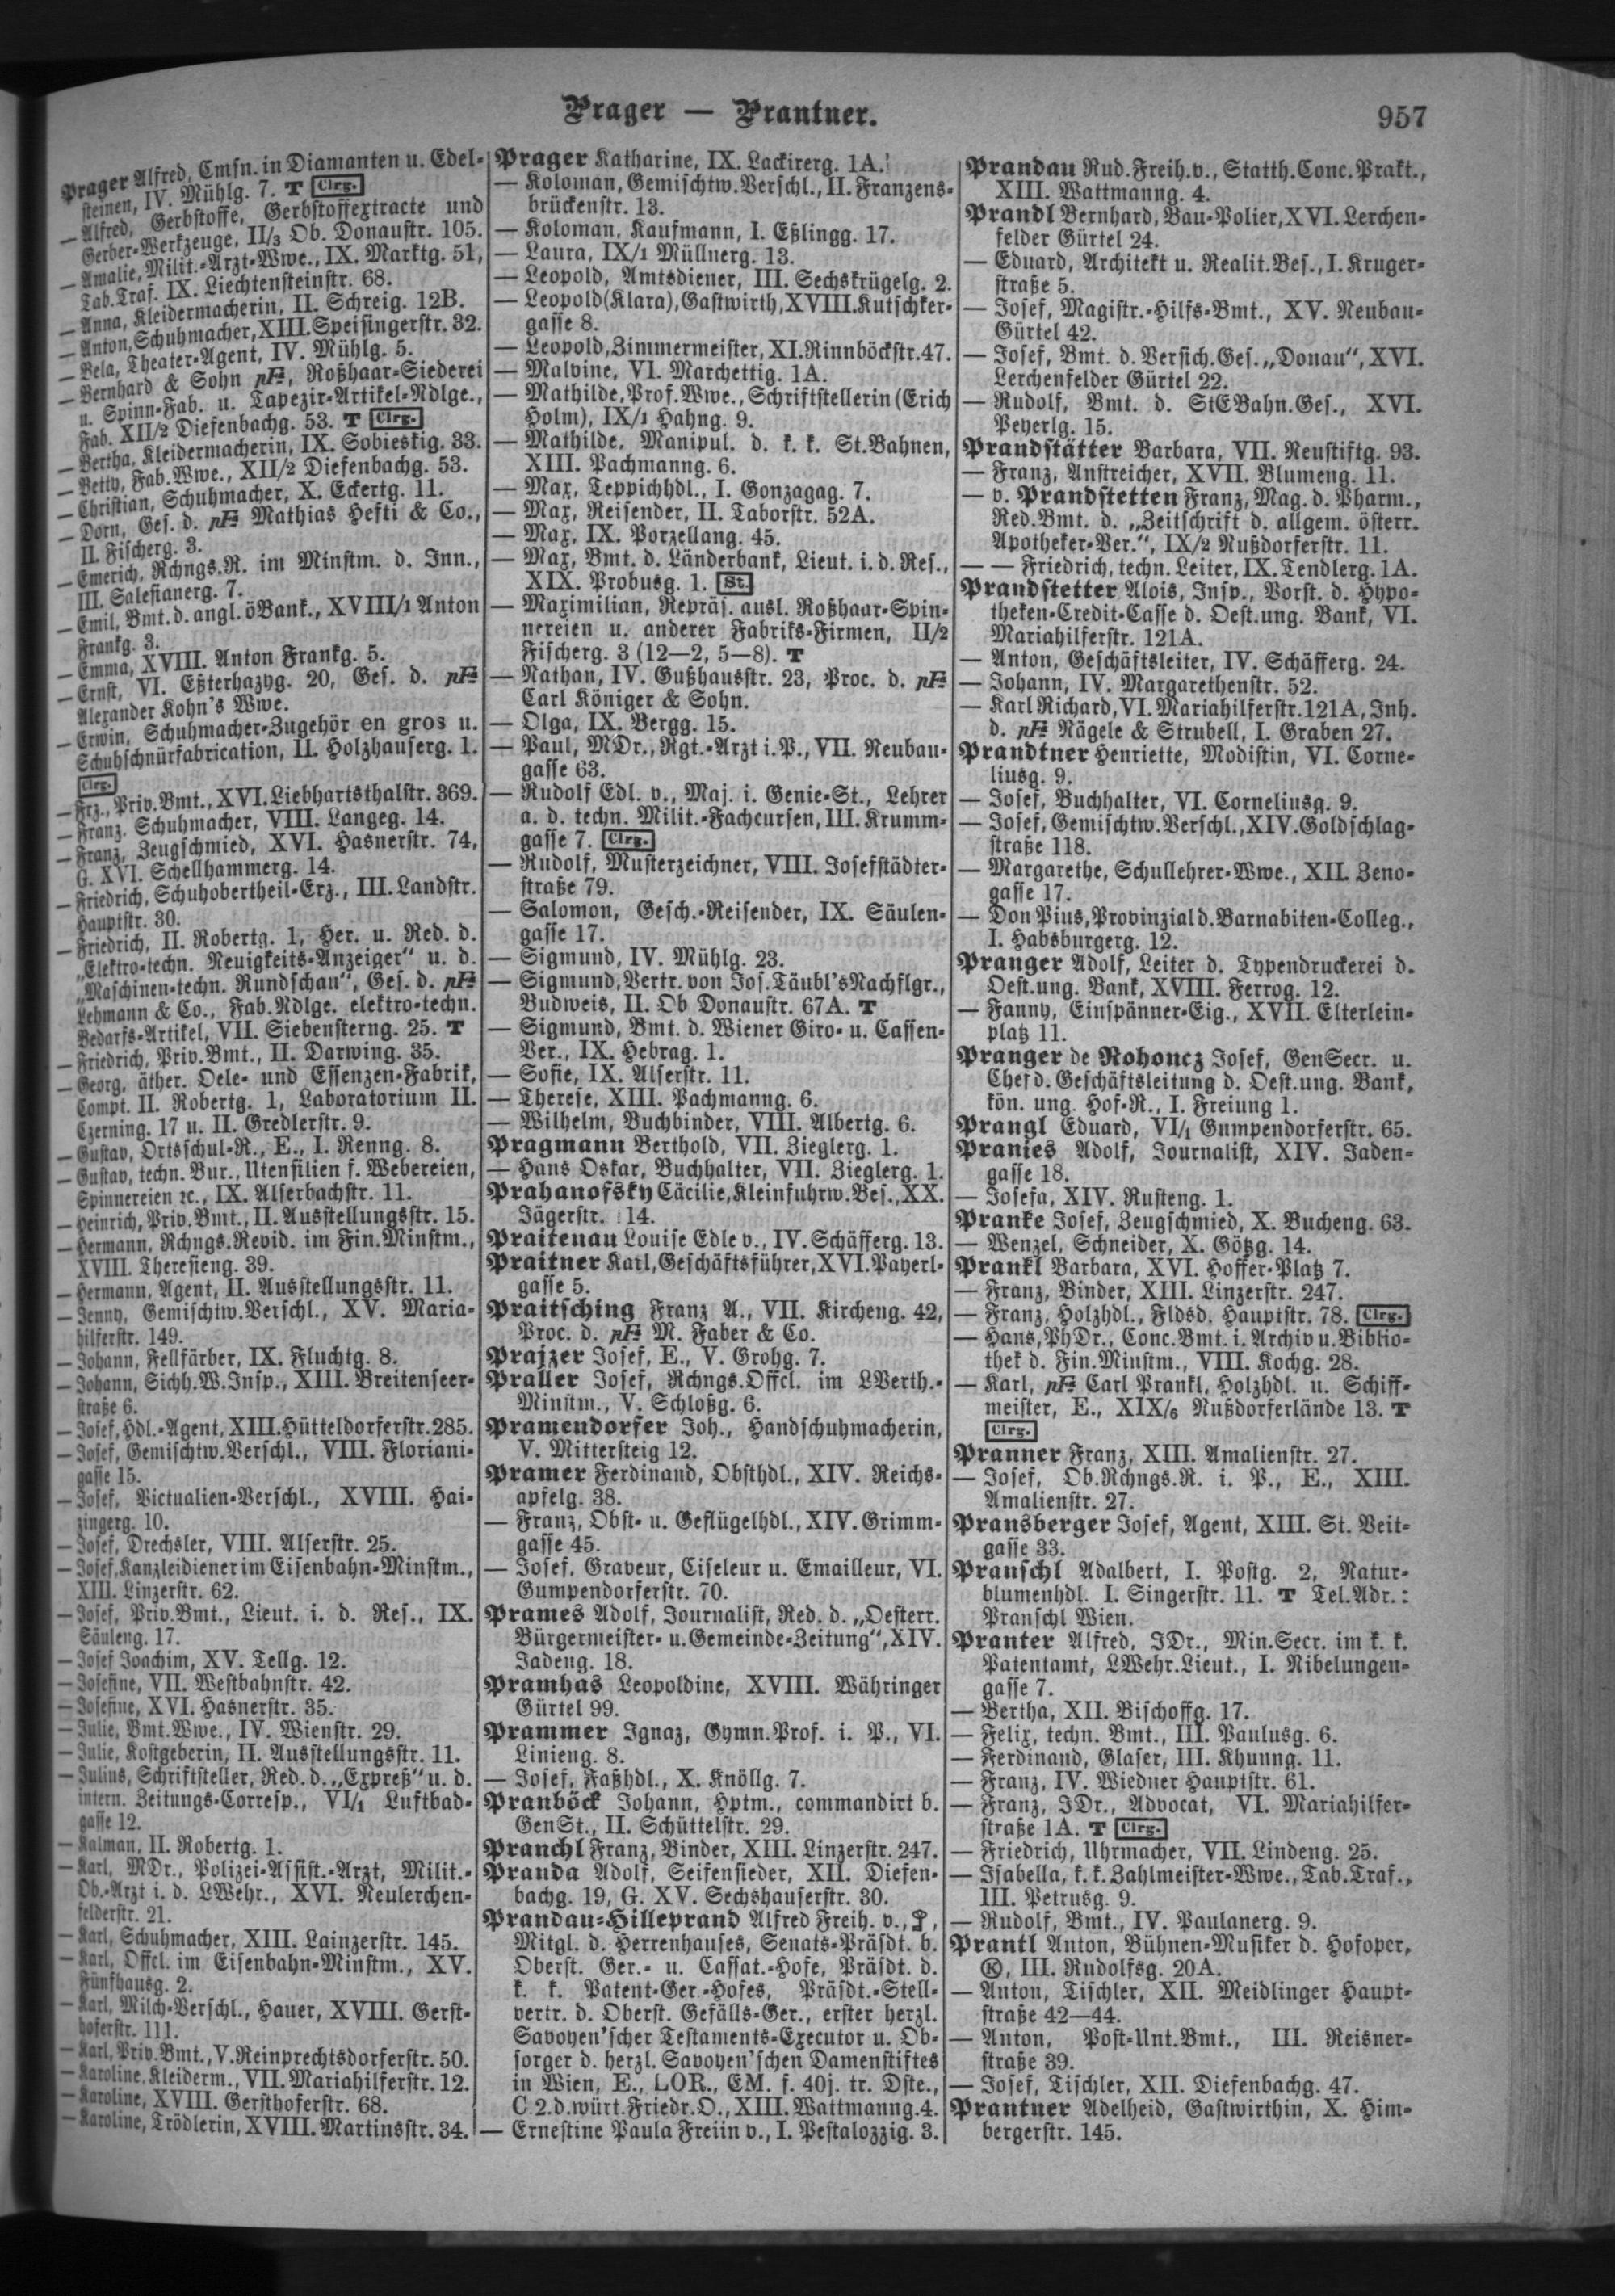 Prager — Prantner.
957
Prager Alfred, Cmsn. in Diamanten u. Edel-
steinen, IV. Mühlg. 7. T Clrg.
— Alfred, Gerbstoffe, Gerbstoffextracte und
Gerber-Werkzeuge, II/3 Ob. Donaustr. 105.
— Amalie, Milit.-Arzt-Wwe., IX. Marktg. 51,
Tab.Traf. IX. Liechtensteinstr. 68.
— Anna, Kleidermacherin, II. Schreig. 12B.
— Anton, Schuhmacher, XIII. Speisingerstr. 32.
— Bela, Theater-Agent, IV. Mühlg. 5.
— Bernhard & Sohn pF, Roßhaar-Siederei
u. Spinn-Fab. u. Tapezir-Artikel-Ndlge.,
Fab. XII/2 Diefenbachg. 53. T Clrg.
— Bertha, Kleidermacherin, IX. Sobieskig. 33.
— Betty, Fab.Wwe., XII/2 Diefenbachg. 53.
— Christian, Schuhmacher, X. Eckertg. 11.
— Dorn, Ges. d. pF Mathias Hefti & Co.,
II. Fischerg. 3.
— Emerich, Rchngs.R. im Minstm. d. Inn.,
III. Salesianerg. 7.
— Emil, Bmt. d. angl. öBank., XVIII/1 Anton
Frankg. 3.
— Emma, XVIII. Anton Frankg. 5.
— Ernst, VI. Eßterhazyg. 20, Ges. d. pF
Alexander Kohn's Wwe.
— Erwin, Schuhmacher-Zugehör en gros u.
Schuhschnürfabrication, II. Holzhauserg. 1.
Clrg.
— Frz., Priv.Bmt., XVI. Liebhartsthalstr. 369.
— Franz. Schuhmacher, VIII. Langeg. 14.
— Franz, Zeugschmied, XVI. Hasnerstr. 74,
G. XVI. Schellhammerg. 14.
— Friedrich, Schuhobertheil-Erz., III. Landstr.
Hauptstr. 30.
— Friedrich, II. Robertg. 1, Her. u. Red. d.
„Elektro-techn. Neuigkeits-Anzeiger“ u. d.
„Maschinen-techn. Rundschau“, Ges. d. pF
Lehmann & Co., Fab.Ndlge. elektro-techn.
Bedarfs-Artikel, VII. Siebensterng. 25. T
— Friedrich, Priv.Bmt., II. Darwing. 35.
— Georg, äther. Oele- und Essenzen-Fabrik,
Compt. II. Robertg. 1, Laboratorium II.
Czerning. 17 u. II. Gredlerstr. 9.
— Gustav, Ortsschul-R., E., I. Renng. 8.
— Gustav, techn. Bur., Utensilien f. Webereien,
Spinnereien ꝛc., IX. Alserbachstr. 11.
— Heinrich, Priv.Bmt., II. Ausstellungsstr. 15.
— Hermann, Rchngs.Revid. im Fin.Minstm.,
XVIII. Theresieng. 39.
— Hermann, Agent, II. Ausstellungsstr. 11.
— Jenny, Gemischtw.Verschl., XV. Maria-
hilferstr. 149.
— Johann, Fellfärber, IX. Fluchtg. 8.
— Johann, Sichh.W.Insp., XIII. Breitenseer-
straße 6.
— Josef, Hdl.-Agent, XIII. Hütteldorferstr. 285.
— Josef, Gemischtw.Verschl., VIII. Floriani-
gasse 15.
— Josef, Victualien-Verschl., XVIII. Hai-
zingerg. 10.
— Josef, Drechsler, VIII. Alserstr. 25.
— Josef, Kanzleidiener im Eisenbahn-Minstm.,
XIII. Linzerstr. 62.
— Josef, Priv.Bmt., Lieut. i. d. Res., IX.
Säuleng. 17.
— Josef Joachim, XV. Tellg. 12.
— Josefine, VII. Westbahnstr. 42.
— Josefine, XVI. Hasnerstr. 35.
— Julie, Bmt.Wwe., IV. Wienstr. 29.
— Julie, Kostgeberin, II. Ausstellungsstr. 11.
— Julius, Schriftsteller, Red. d. „Expreß“ u. d.
intern. Zeitungs-Corresp., VI/1 Luftbad-
gasse 12.
— Kalman, II. Robertg. 1.
— Karl, MDr., Polizei-Assist.-Arzt, Milit.-
Ob.-Arzt i. d. LWehr., XVI. Neulerchen-
felderstr. 21.
— Karl, Schuhmacher, XIII. Lainzerstr. 145.
— Karl, Offcl. im Eisenbahn-Minstm., XV.
Fünfhausg. 2.
— Karl, Milch-Verschl., Hauer, XVIII. Gerst-
hoferstr. 111.
— Karl, Priv.Bmt., V. Reinprechtsdorferstr. 50.
— Karoline, Kleiderm., VII. Mariahilferstr. 12.
— Karoline, XVIII. Gersthoferstr. 68.
— Karoline, Trödlerin, XVIII. Martinsstr. 34.
Prager Katharine, IX. Lackirerg. 1A.
— Koloman, Gemischtw.Verschl., II. Franzens-
brückenstr. 13.
— Koloman, Kaufmann, I. Eßlingg. 17.
— Laura, IX/1 Müllnerg. 13.
— Leopold, Amtsdiener, III. Sechskrügelg. 2.
— Leopold (Klara), Gastwirth, XVIII. Kutschker-
gasse 8.
— Leopold, Zimmermeister, XI. Rinnböckstr. 47.
— Malvine, VI. Marchettig. 1A.
— Mathilde, Prof.Wwe., Schriftstellerin (Erich
Holm), IX/1 Hahng. 9.
— Mathilde, Manipul. d. k. k. St.Bahnen,
XIII. Pachmanng. 6.
— Max, Teppichhdl., I. Gonzagag. 7.
— Max, Reisender, II. Taborstr. 52A.
— Max, IX. Porzellang. 45.
— Max, Bmt. d. Länderbank, Lieut. i. d. Res.,
XIX. Probusg. 1. St.
— Maximilian, Repräs. ausl. Roßhaar-Spin-
nereien u. anderer Fabriks-Firmen, II/2
Fischerg. 3 (12—2, 5—8). T
— Nathan, IV. Gußhausstr. 23, Proc. d. pF
Carl Königer & Sohn.
— Olga, IX. Bergg. 15.
— Paul, MDr., Rgt.-Arzt i. P., VII. Neubau-
gasse 63.
— Rudolf Edl. v., Maj. i. Genie-St., Lehrer
a. d. techn. Milit.-Fachcursen, III. Krumm-
gasse 7. Clrg.
— Rudolf, Musterzeichner, VIII. Josefstädter-
straße 79.
— Salomon, Gesch.-Reisender, IX. Säulen-
gasse 17.
— Sigmund, IV. Mühlg. 23.
— Sigmund, Vertr. von Jos. Täubl's Nachflgr.,
Budweis, II. Ob Donaustr. 67A. T
— Sigmund, Bmt. d. Wiener Giro- u. Cassen-
Ver., IX. Hebrag. 1.
— Sofie, IX. Alserstr. 11.
— Therese, XIII. Pachmanng. 6.
— Wilhelm, Buchbinder, VIII. Albertg. 6.
Pragmann Berthold, VII. Zieglerg. 1.
— Hans Oskar, Buchhalter, VII. Zieglerg. 1.
Prahanofsky Cäcilie, Kleinfuhrw.Bes., XX.
Jägerstr. 14.
Praitenau Louise Edle v., IV. Schäfferg. 13.
Praitner Karl, Geschäftsführer, XVI. Payerl-
gasse 5.
Praitsching Franz A., VII. Kircheng. 42,
Proc. d. pF M. Faber & Co.
Prajzer Josef, E., V. Grohg. 7.
Praller Josef, Rchngs.Offcl. im LVerth.-
Minstm., V. Schloßg. 6.
Pramendorfer Joh., Handschuhmacherin,
V. Mittersteig 12.
Pramer Ferdinand, Obsthdl., XIV. Reichs-
apfelg. 38.
— Franz, Obst- u. Geflügelhdl., XIV. Grimm-
gasse 45.
— Josef, Graveur, Ciseleur u. Emailleur, VI.
Gumpendorferstr. 70.
Prames Adolf, Journalist, Red. d. „Oesterr.
Bürgermeister- u. Gemeinde-Zeitung“, XIV.
Jadeng. 18.
Pramhas Leopoldine, XVIII. Währinger
Gürtel 99.
Prammer Ignaz, Gymn.Prof. i. P., VI.
Linieng. 8.
— Josef, Faßhdl., X. Knöllg. 7.
Pranböck Johann, Hptm., commandirt b.
GenSt., II. Schüttelstr. 29.
Pranchl Franz, Binder, XIII. Linzerstr. 247.
Pranda Adolf, Seifensieder, XII. Diefen-
bachg. 19, G. XV. Sechshauserstr. 30.
Prandau-Hilleprand Alfred Freih. v.,
Mitgl. d. Herrenhauses, Senats-Präsdt. b.
Oberst. Ger.- u. Cassat.-Hofe, Präsdt. d.
k. k. Patent-Ger.-Hofes, Präsdt.-Stell-
vertr. d. Oberst. Gefälls-Ger., erster herzl.
Savoyen'scher Testaments-Executor u. Ob-
sorger d. herzl. Savoyen'schen Damenstiftes
in Wien, E., LOR., EM. f. 40j. tr. Dste.,
C.2.d.würt.Friedr.O., XIII. Wattmanng. 4.
— Ernestine Paula Freiin v., I. Pestalozzig. 3.
Prandau Rud. Freih. v., Statth.Conc.Prakt.,
XIII. Wattmanng. 4.
Prandl Bernhard, Bau-Polier, XVI. Lerchen-
felder Gürtel 24.
— Eduard, Architekt u. Realit.Bes., I. Kruger-
straße 5.
— Josef, Magistr.-Hilfs-Bmt., XV. Neubau-
Gürtel 42.
— Josef, Bmt. d. Versich.Ges. „Donau“, XVI.
Lerchenfelder Gürtel 22.
— Rudolf, Bmt. d. StEBahn.Ges., XVI.
Peyerlg. 15.
Prandstätter Barbara, VII. Neustiftg. 93.
— Franz, Anstreicher, XVII. Blumeng. 11.
— v. Prandstetten Franz, Mag. d. Pharm.,
Red.Bmt. d. „Zeitschrift d. allgem. österr.
Apotheker-Ver.“, IX/2 Nußdorferstr. 11.
— — Friedrich, techn. Leiter, IX. Tendlerg. 1A.
Prandstetter Alois, Insp., Vorst. d. Hypo-
theken-Credit-Casse d. Oest.ung. Bank, VI.
Mariahilferstr. 121A.
— Anton, Geschäftsleiter, IV. Schäfferg. 24.
— Johann, IV. Margarethenstr. 52.
— Karl Richard, VI. Mariahilferstr. 121A, Inh.
d. pF Nägele & Strubell, I. Graben 27.
Prandtner Henriette, Modistin, VI. Corne-
liusg. 9.
— Josef, Buchhalter, VI. Corneliusg. 9.
— Josef, Gemischtw.Verschl., XIV. Goldschlag-
straße 118.
— Margarethe, Schullehrer-Wwe., XII. Zeno-
gasse 17.
— Don Pius, Provinzial d. Barnabiten-Colleg.,
I. Habsburgerg. 12.
Pranger Adolf, Leiter d. Typendruckerei d.
Oest.ung. Bank, XVIII. Ferrog. 12.
— Fanny, Einspänner-Eig., XVII. Elterlein-
platz 11.
Pranger de Rohoncz Josef, GenSecr. u.
Chef d. Geschäftsleitung d. Oest.ung. Bank,
kön. ung. Hof-R., I. Freiung 1.
Prangl Eduard, VI/1 Gumpendorferstr. 65.
Pranies Adolf, Journalist, XIV. Jaden-
gasse 18.
— Josefa, XIV. Rusteng. 1.
Pranke Josef, Zeugschmied, X. Bucheng. 63.
— Wenzel, Schneider, X. Götzg. 14.
Prankl Barbara, XVI. Hoffer-Platz 7.
— Franz, Binder, XIII. Linzerstr. 247.
— Franz, Holzhdl., Fldsd. Hauptstr. 78. Clrg.
— Hans, PhDr., Conc.Bmt. i. Archiv u. Biblio-
thek d. Fin.Minstm., VIII. Kochg. 28.
— Karl, pF Carl Prankl, Holzhdl. u. Schiff-
meister, E., XIX/6 Nußdorferlände 13. T
Clrg.
Pranner Franz, XIII. Amalienstr. 27.
— Josef, Ob.Rchngs.R. i. P., E., XIII.
Amalienstr. 27.
Pransberger Josef, Agent, XIII. St. Veit-
gasse 33.
Pranschl Adalbert, I. Postg. 2, Natur-
blumenhdl. I. Singerstr. 11. T Tel.Adr.:
Pranschl Wien.
Pranter Alfred, JDr., Min.Secr. im k. k.
Patentamt, LWehr.Lieut., I. Nibelungen-
gasse 7.
— Bertha, XII. Bischoffg. 17.
— Felix, techn. Bmt., III. Paulusg. 6.
— Ferdinand, Glaser, III. Khunng. 11.
— Franz, IV. Wiedner Hauptstr. 61.
— Franz, JDr., Advocat, VI. Mariahilfer-
straße 1A. T Clrg.
— Friedrich, Uhrmacher, VII. Lindeng. 25.
— Isabella, k. k. Zahlmeister-Wwe., Tab.Traf.,
III. Petrusg. 9.
— Rudolf, Bmt., IV. Paulanerg. 9.
Prantl Anton, Bühnen-Musiker d. Hofoper,
Ⓚ, III. Rudolfsg. 20A.
— Anton, Tischler, XII. Meidlinger Haupt-
straße 42—44.
— Anton, Post-Unt.Bmt., III. Reisner-
straße 39.
— Josef, Tischler, XII. Diefenbachg. 47.
Prantner Adelheid, Gastwirthin, X. Him-
bergerstr. 145.